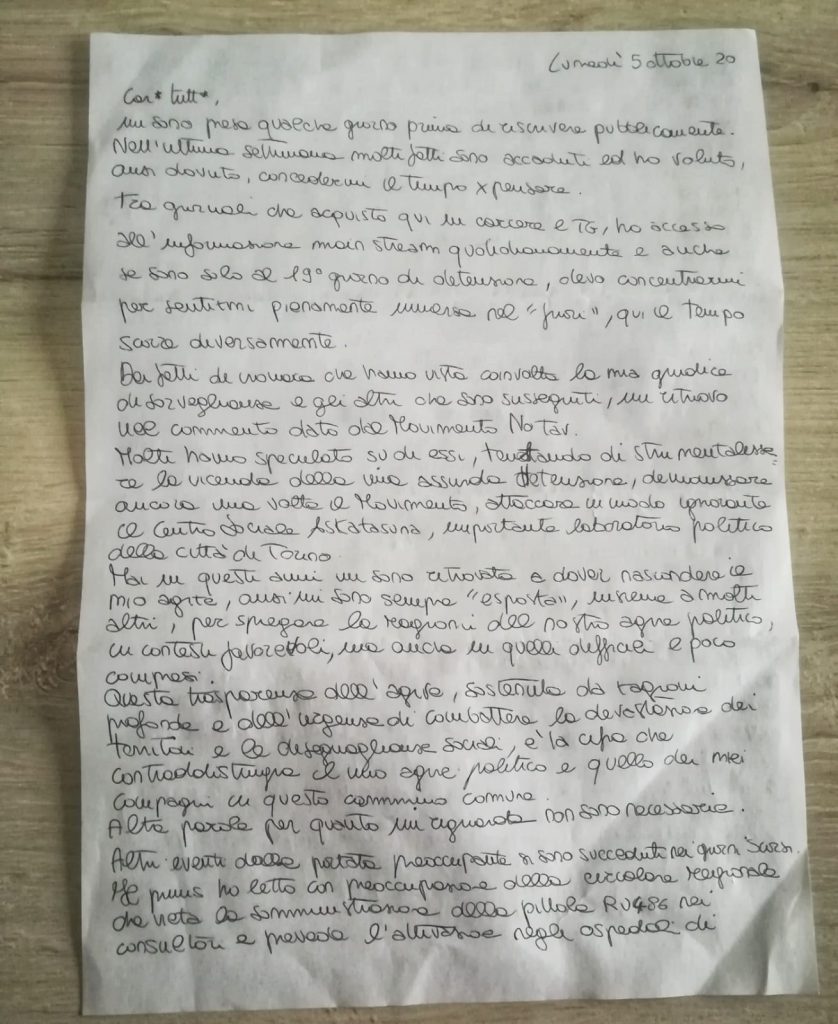 Lunedì 5 ottobre 20
Car* tutt*,
mi sono presa qualche giorno prima di riscrivere pubblicamente.
Nell'ultima settimana molti fatti sono accaduti ed ho voluto,
anzi dovuto, concedermi il tempo x pensare.
Tra giornali che acquisto qui in carcere e TG, ho accesso
all'informazione main stream quotidianamente e anche
se sono solo al 19° giorno di detenzione, devo concentrarmi
per sentirmi pienamente immersa nel "fuori", qui il tempo
scorre diversamente.
Dei fatti di cronaca che hanno visto coinvolta la mia giudice
di sorveglianza e gli altri che sono susseguiti, mi ritrovo
nel commento dato dal Movimento No Tav.
Molti hanno speculato su di essi, tentando di strumentalizza=
re la vicenda della mia assurda detenzione, demonizzare
ancora una volta il Movimento, attaccare in modo ignorante
il Centro Sociale Askatasuna, importante laboratorio politico
della città di Torino.
Mai in questi anni mi sono ritrovata a dover nascondere il
mio agire, anzi mi sono sempre "esposta", insieme a molti
altri, per spiegare le ragioni del nostro agire politico,
in contesti favorevoli, ma anche in quelli difficili e poco
compresi.
Questa trasparenza dell'agire, sostenuta da ragioni
profonde e dall'urgenza di combattere la devastazione dei
territori e le diseguaglianze sociali, è la cifra che
contraddistingue il mio agire politico e quello dei miei
compagni in questo cammino comune.
Altre parole per quanto mi riguarda non sono necessarie.
Altri eventi dalla portata preoccupante si sono succeduti nei giorni scorsi.
In primis ho letto con preoccupazione della circolare regionale
che vieta la somministrazione della pillola RU486 nei
consultori e prevede l'attivazione negli ospedali di